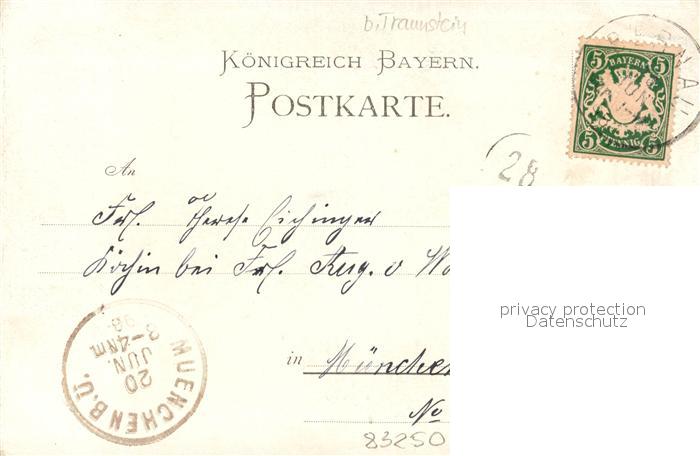 b. Traunstein
KÖNIGREICH BAYERN.
POSTKARTE.
BAYERN
5 5
5 5
PFENNIG
JUN
28
An
Frl. Therese Eichinger
Köchin bei Frl. Aug. v
in München
No
83250
MUENCHEN B.Ü.
20
JUN.
3-4 Nm.
98
privacy protection
Datenschutz